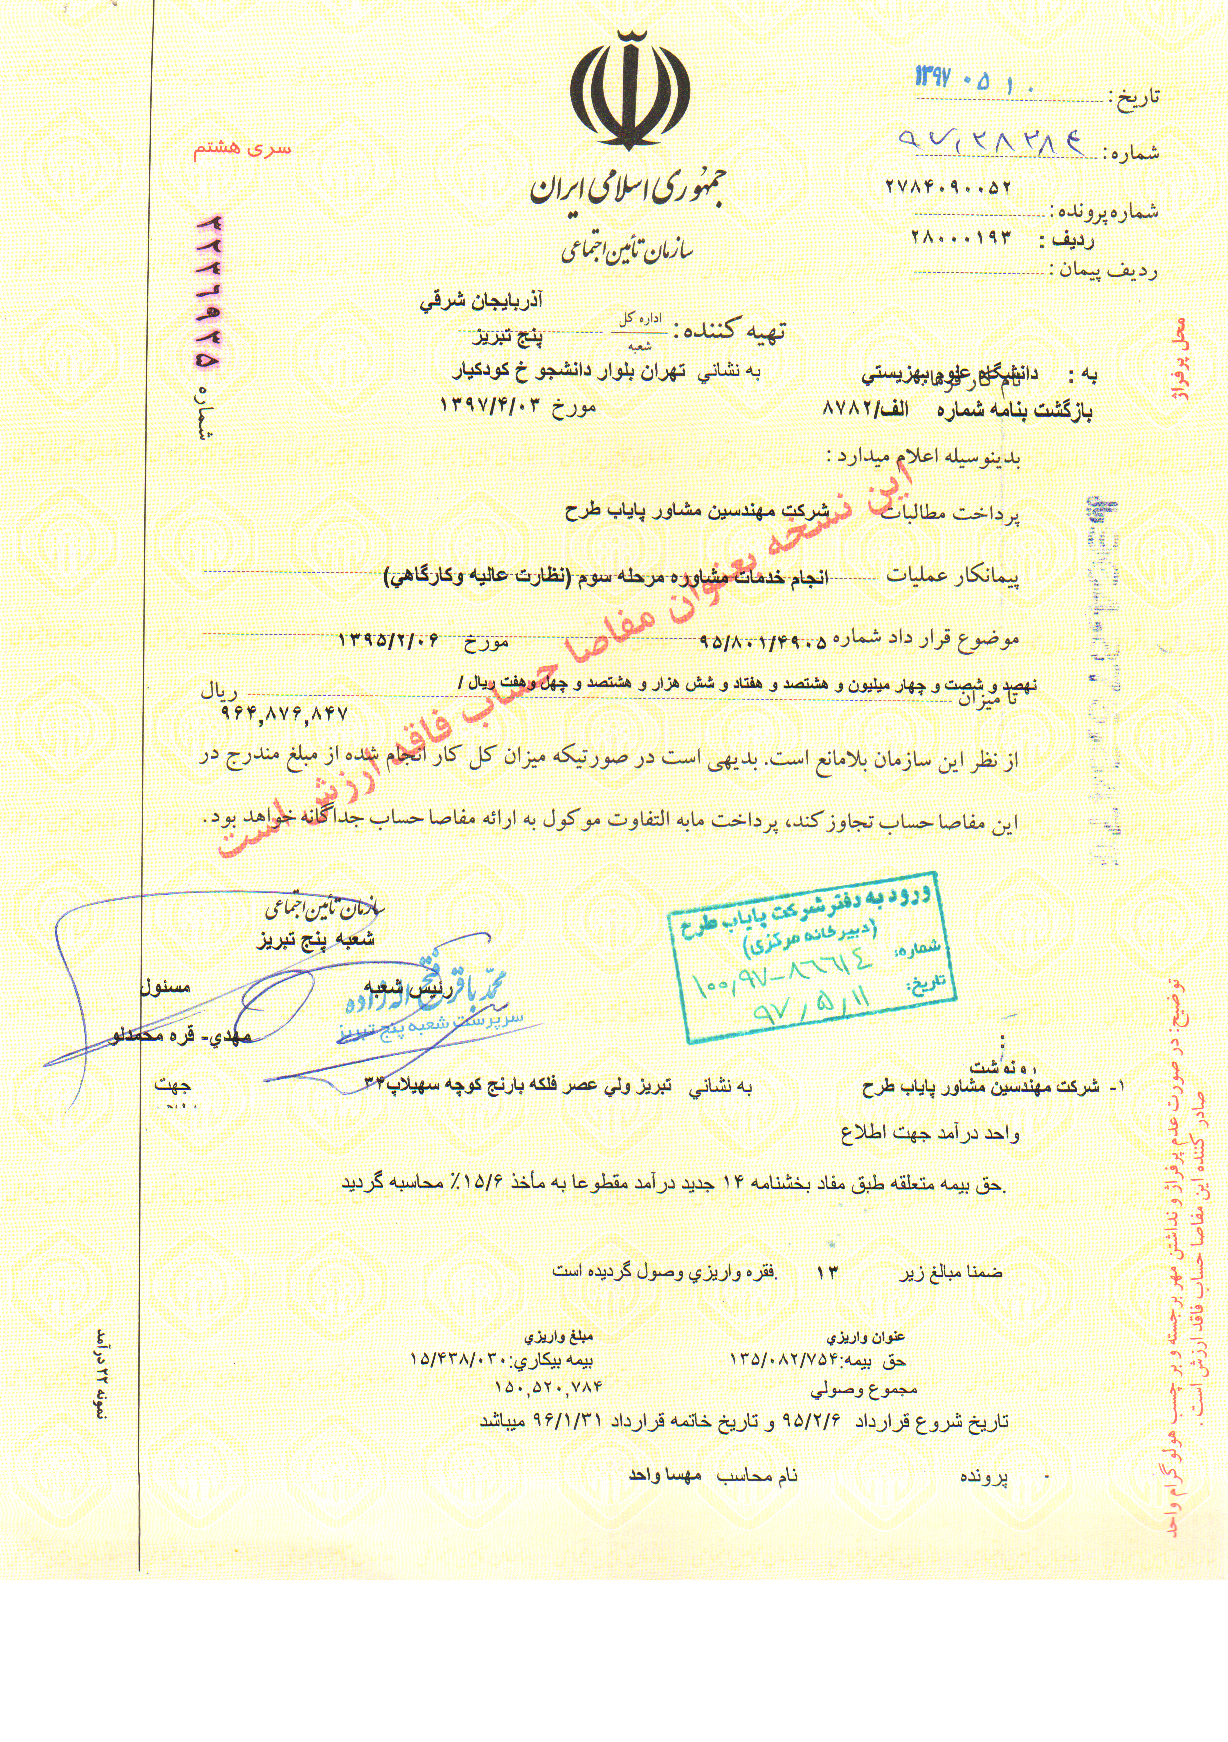 تاریخ: ۱۳۹۷ ۰۵ ۱۰
شماره: ۹۷/۲۸۲۸۴
۲۷۸۴۰۹۰۰۵۲
شماره پرونده:
ردیف : ۲۸۰۰۰۱۹۳
ردیف پیمان :
جمهوری اسلامی ایران
سازمان تأمین اجتماعی
سری هشتم
شماره ۳۲۳۶۹۳۵
آذربایجان شرقي
تهیه کننده: اداره کل
شعبه پنج تبریز
محل پرفراژ
نام کارفرما:
به : دانشگاه علوم بهزیستي به نشاني تهران بلوار دانشجو خ کودکیار
بازگشت بنامه شماره الف/۸۷۸۲ مورخ ۱۳۹۷/۴/۰۳
بدینوسیله اعلام میدارد :
پرداخت مطالبات شرکت مهندسین مشاور پایاب طرح
پیمانکار عملیات انجام خدمات مشاوره مرحله سوم (نظارت عالیه وکارگاهي)
موضوع قرار داد شماره ۹۵/۸۰۱/۴۹۰۵ مورخ ۱۳۹۵/۲/۰۶
نهصد و شصت و چهار میلیون و هشتصد و هفتاد و شش هزار و هشتصد و چهل وهفت ریال /
تا میزان ریال
۹۶۴,۸۷۶,۸۴۷
از نظر این سازمان بلامانع است. بدیهی است در صورتیکه میزان کل کار انجام شده از مبلغ مندرج در
این مفاصا حساب تجاوز کند، پرداخت مابه التفاوت موکول به ارائه مفاصا حساب جداگانه خواهد بود.
این نسخه بعنوان مفاصا حساب فاقد ارزش است
سازمان تأمین اجتماعی
شعبه پنج تبریز
رئیس شعبه مسئول
محمد باقر فتح اله زاده
سرپرست شعبه پنج تبریز
مهدي- قره محمدلو
ورود به دفتر شرکت پایاب طرح
(دبیرخانه مرکزی)
شماره: ۱۰۰,۹۷-۸۶۶۱۴
تاریخ: ۹۷/۵/۱۱
رونوشت :
۱- شرکت مهندسین مشاور پایاب طرح به نشاني تبریز ولي عصر فلکه بارنج کوچه سهیلاپ۳۴ جهت
واحد درآمد جهت اطلاع
حق بیمه متعلقه طبق مفاد بخشنامه ۱۴ جدید درآمد مقطوعا به مأخذ ۱۵/۶٪ محاسبه گردید.
ضمنا مبالغ زیر ۱۳ فقره واریزي وصول گردیده است.
عنوان واریزي مبلغ واریزي
حق بیمه:۱۳۵/۰۸۲/۷۵۴ بیمه بیکاري:۱۵/۴۳۸/۰۳۰
مجموع وصولي ۱۵۰,۵۲۰,۷۸۴
تاریخ شروع قرارداد ۹۵/۲/۶ و تاریخ خاتمه قرارداد ۹۶/۱/۳۱ میباشد
پرونده نام محاسب مهسا واحد
نمونه ۲۲ درآمد
توضیح: در صورت عدم پرفراژ و نداشتن مهر برجسته و بر چسب هولو گرام واحد
صادر کننده این مفاصا حساب فاقد ارزش است .